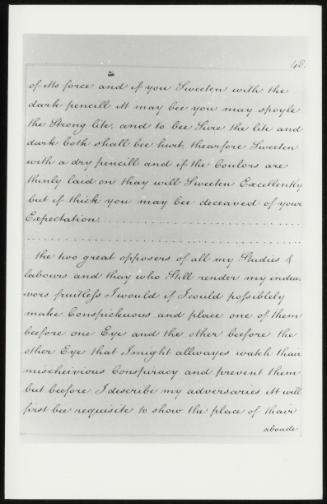 48.
of its force and if you Sweeten with the
dark pencill it may bee you may spoyle
the Strong lite, and to bee Sure the lite and
dark both shall bee hurt, thearfore Sweeten
with a dry pencill and if the Coulors are
thinly laid on thay will Sweeten Excellently
but if thick you may bee deceaved of your
Expectation
the two great opposers of all my Studies &
labours and thay who Still render my endea,
vors fruitless I would if I could possiblely
make Conspickeuous and place one of them
beefore one Eye and the other beefore the
other Eye that I might allwayes watch thair
mischeivious Conspuracy and prevent them
but beefore I describe my adversaries it will
first bee requisite to show the place of thair
aboade